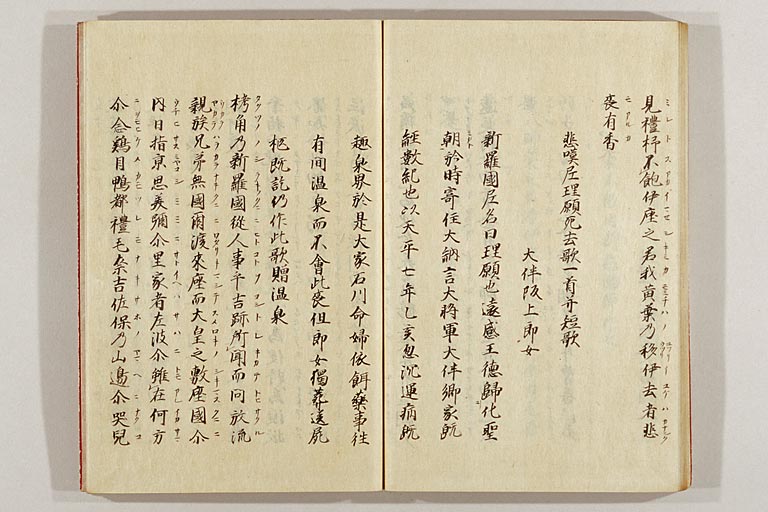 見禮杼不飽伊座之君我黄葉乃移伊去者悲
喪有香
悲嘆尼理願死去歌一首并短歌
大伴阪上郎女
新羅國尼名曰理願也遠感王德歸化聖
朝於時寄住大納言大將軍大伴卿家既
經數紀也以天平七年乙亥忽沈運病既
趣泉界於是大家石川命婦依餌藥事往
有间温泉而不會此喪但郎女獨葬送屍
柩既訖仍作此歌贈温泉
栲角乃新羅國從人事乎吉跡所聞而问放流
親族兄弟無國爾渡來座而大皇之敷座國尒
内日指京思美弥尒里家者左波尒雖在何方
尒念鷄目鴨都禮毛奈吉佐保乃山邊尒哭兒